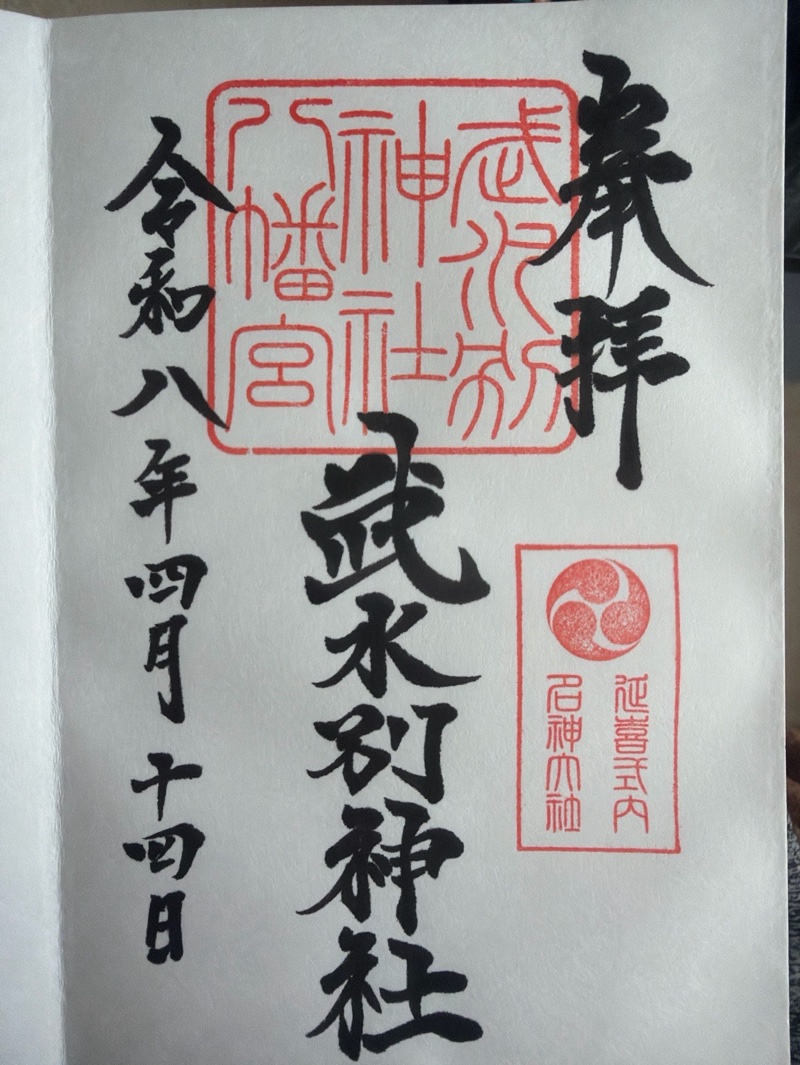 奉拝
武水別
神社
八幡宮
延喜式内
名神大社
武水別神社
令和八年四月十四日